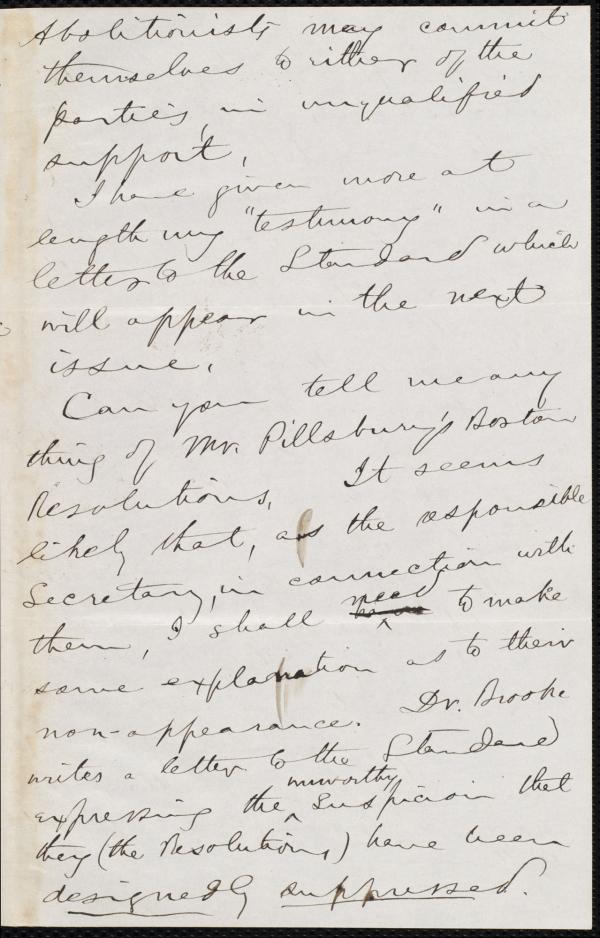 Abolitionists may commit
themselves to either of the
parties, in unqualified
support.
I have given more at
length my "testimony" in a
letter to the Standard which
will appear in the next
issue.
Can you tell me any
thing of Mr. Pillsbury's Boston
Resolutions. It seems
likely that, as the responsible
Secretary, in connection with
them, I shall need to make
some explanation as to their
non-appearance. Dr. Brooke
writes a letter to the Standard
expressing the unworthy suspicion that
they (the Resolutions,) have been
designedly suppressed.